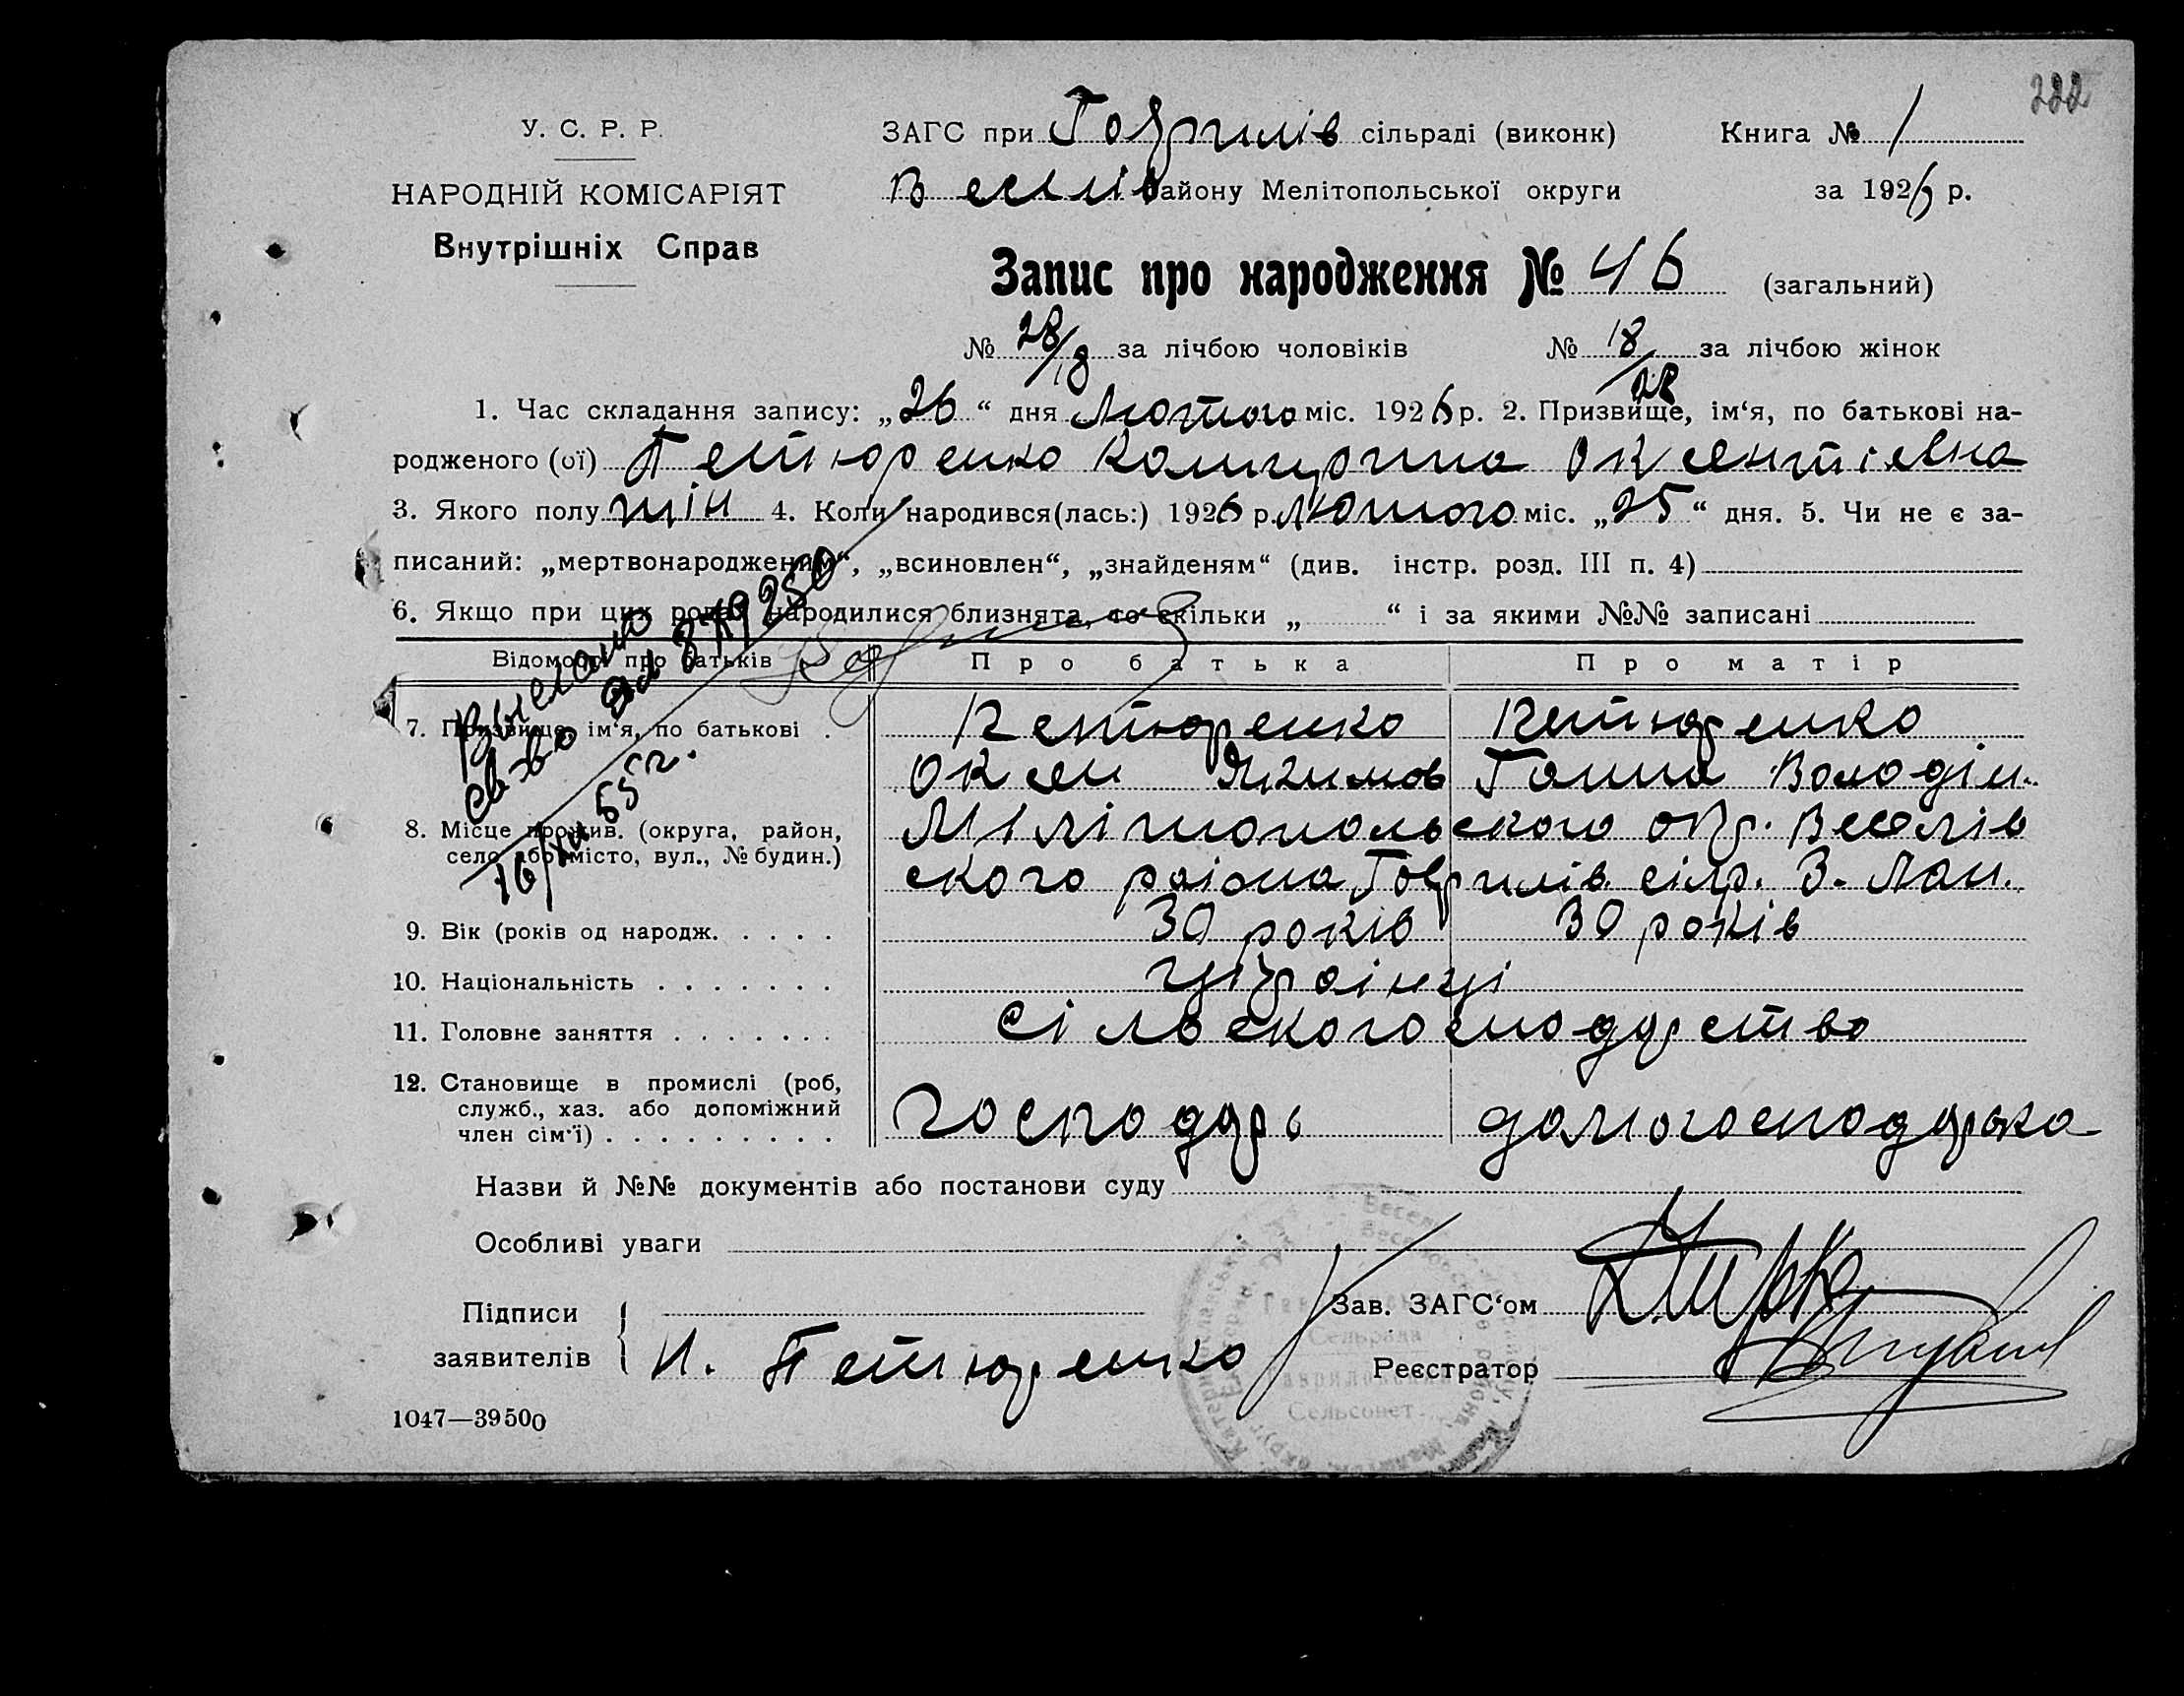 222
У. С. Р. Р.
НАРОДНІЙ КОМІСАРІЯТ
Внутрішніх Справ
ЗАГС при Гаврилів сільраді (виконк)
Книга № 1
Веселів району Мелітопольської округи
за 1926 р.
Запис про народження № 46 (загальний)
№ 28/18 за лічбою чоловіків № 18/28 за лічбою жінок
1. Час складання запису: „26“ дня Лютого міс. 1926 р. 2. Призвище, ім‘я, по батькові на-
родженого (ої) Петюренко Катирина Оксентієвна
3. Якого полу жін 4. Коли народився(лась:) 1926 р. Лютого міс. „25“ дня. 5. Чи не є за-
писаний: „мертвонародженим“, „всиновлен“, „знайденям“ (див. інстр. розд. III п. 4)
6. Якщо при цих родах народилися близнята, то скільки „ “ і за якими №№ записані
Відомості про батьків
Про батька
Про матір
7. Призвище, ім‘я, по батькові .
Петюренко Петюренко
Оксен Якимов Ганна Володім.
8. Місце прожив. (округа, район,
село або місто, вул., № будин.)
Мілітопольського окр. Веселів
ского раіона Гаврилів. сілр. З. Лан.
9. Вік (років од народж. . . . .
30 років 30 років
10. Національність . . . . . . .
украінці
11. Головне заняття . . . . . . .
сільскогосподарство
12. Становище в промислі (роб,
служб., хаз. або допоміжний
член сім‘ї) . . . . . . . . .
господарь домогосподарька
Выслано
св-во
16/XII 55 г.
Назви й №№ документів або постанови суду
Особливі уваги
Підписи
заявителів
И. Петюренко
Зав. ЗАГС‘ом
Реєстратор
Сельрада
Гавриловский
Сельсовет
1047—39500